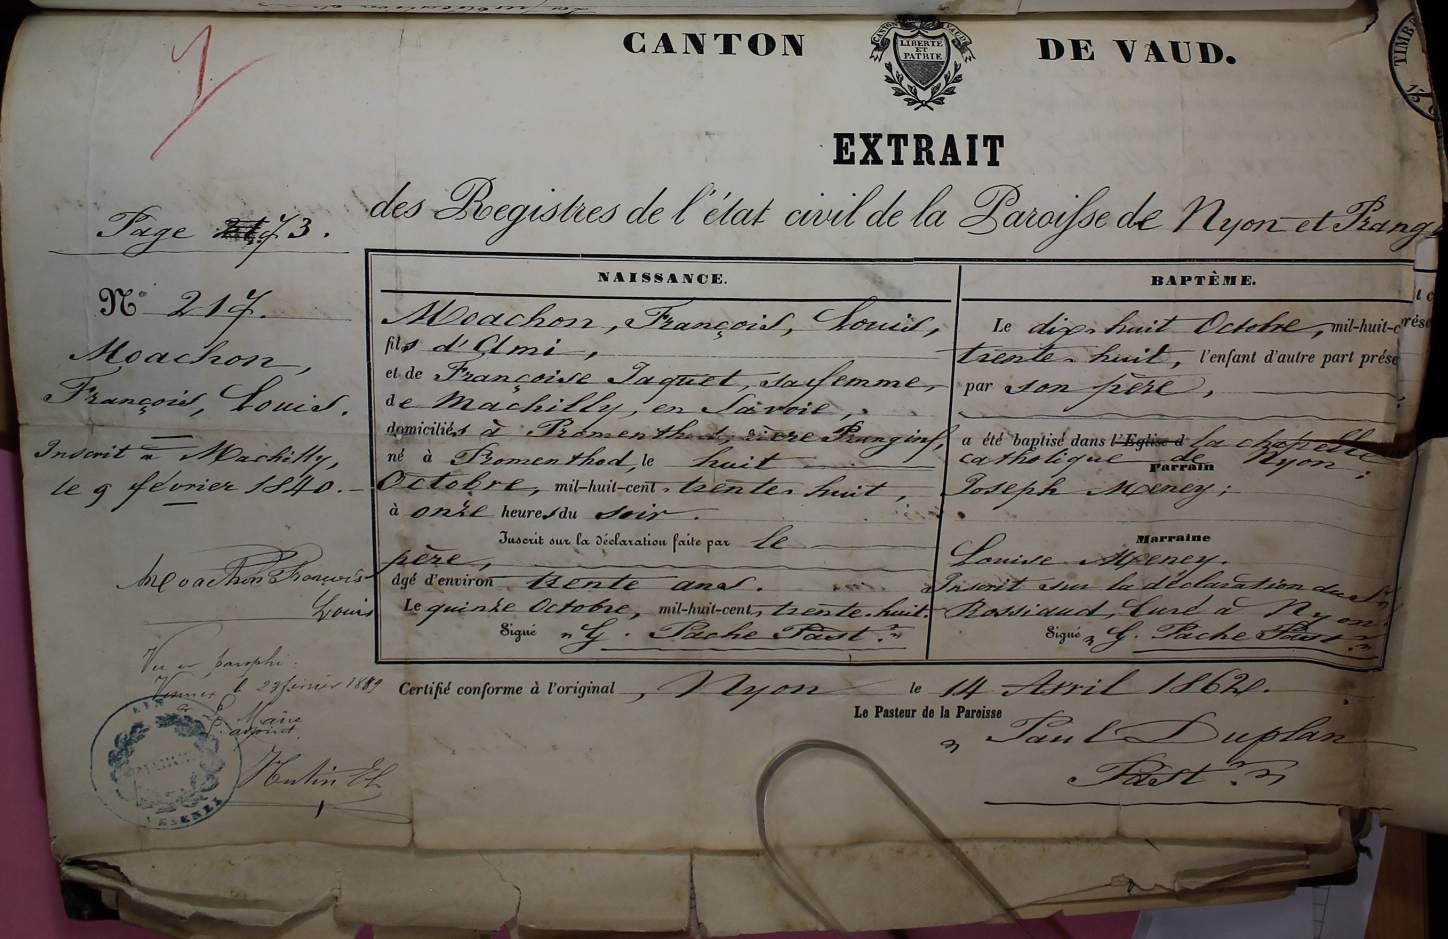 CANTON DE VAUD.
LIBERTE
ET
PATRIE
TIMB
EXTRAIT
des Registres de l'état civil de la Paroisse de Nyon et Prang
Page 73.
N° 217.
Moachon,
François, Louis.
Inscrit à Machilly,
le 9 février 1840.
Moachon François
Louis
Vu et paraphé
le 23 février 1889
Le Maire
Hutin
NAISSANCE.
Moachon, François, Louis,
fils d'Ami,
et de Françoise Jaquet, sa femme,
de Machilly, en Savoie,
domiciliés à Promenthod, rière Prangins,
né à Promenthod, le huit
Octobre, mil-huit-cent trente-huit,
à onze heures du soir.
Inscrit sur la déclaration faite par le
père,
âgé d'environ trente ans.
Le quinze Octobre, mil-huit-cent trente-huit.
Signé "G. Pache Past.r"
BAPTÊME.
Le dix-huit Octobre, mil-huit-c
trente-huit, l'enfant d'autre part prése
par son père,
a été baptisé dans l'Eglise d la chapelle
catholique de Nyon;
Parrain
Joseph Meney;
Marraine
Louise Meney.
Inscrit sur la déclaration du Sr
Rossiaud, Curé à Nyon.
Signé "G. Pache Past.r"
Certifié conforme à l'original, Nyon le 14 Avril 1862.
Le Pasteur de la Paroisse
" Paul Duplan
Past.r "